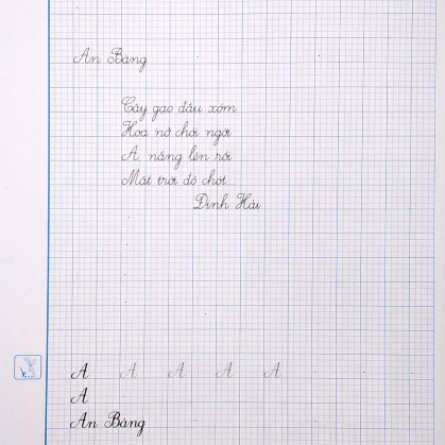 An Bàng
Cây gạo đầu xóm
Hoa nở chói ngời
A, nắng lên rồi
Mặt trời đỏ chót
Định Hải
A A A A A
A
An Bàng